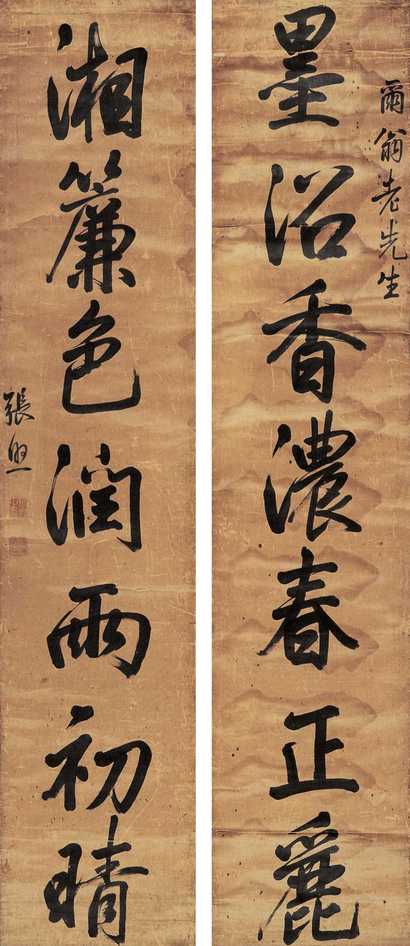 爾翁老先生
墨沼香濃春正麗
湘簾色潤雨初晴
張照